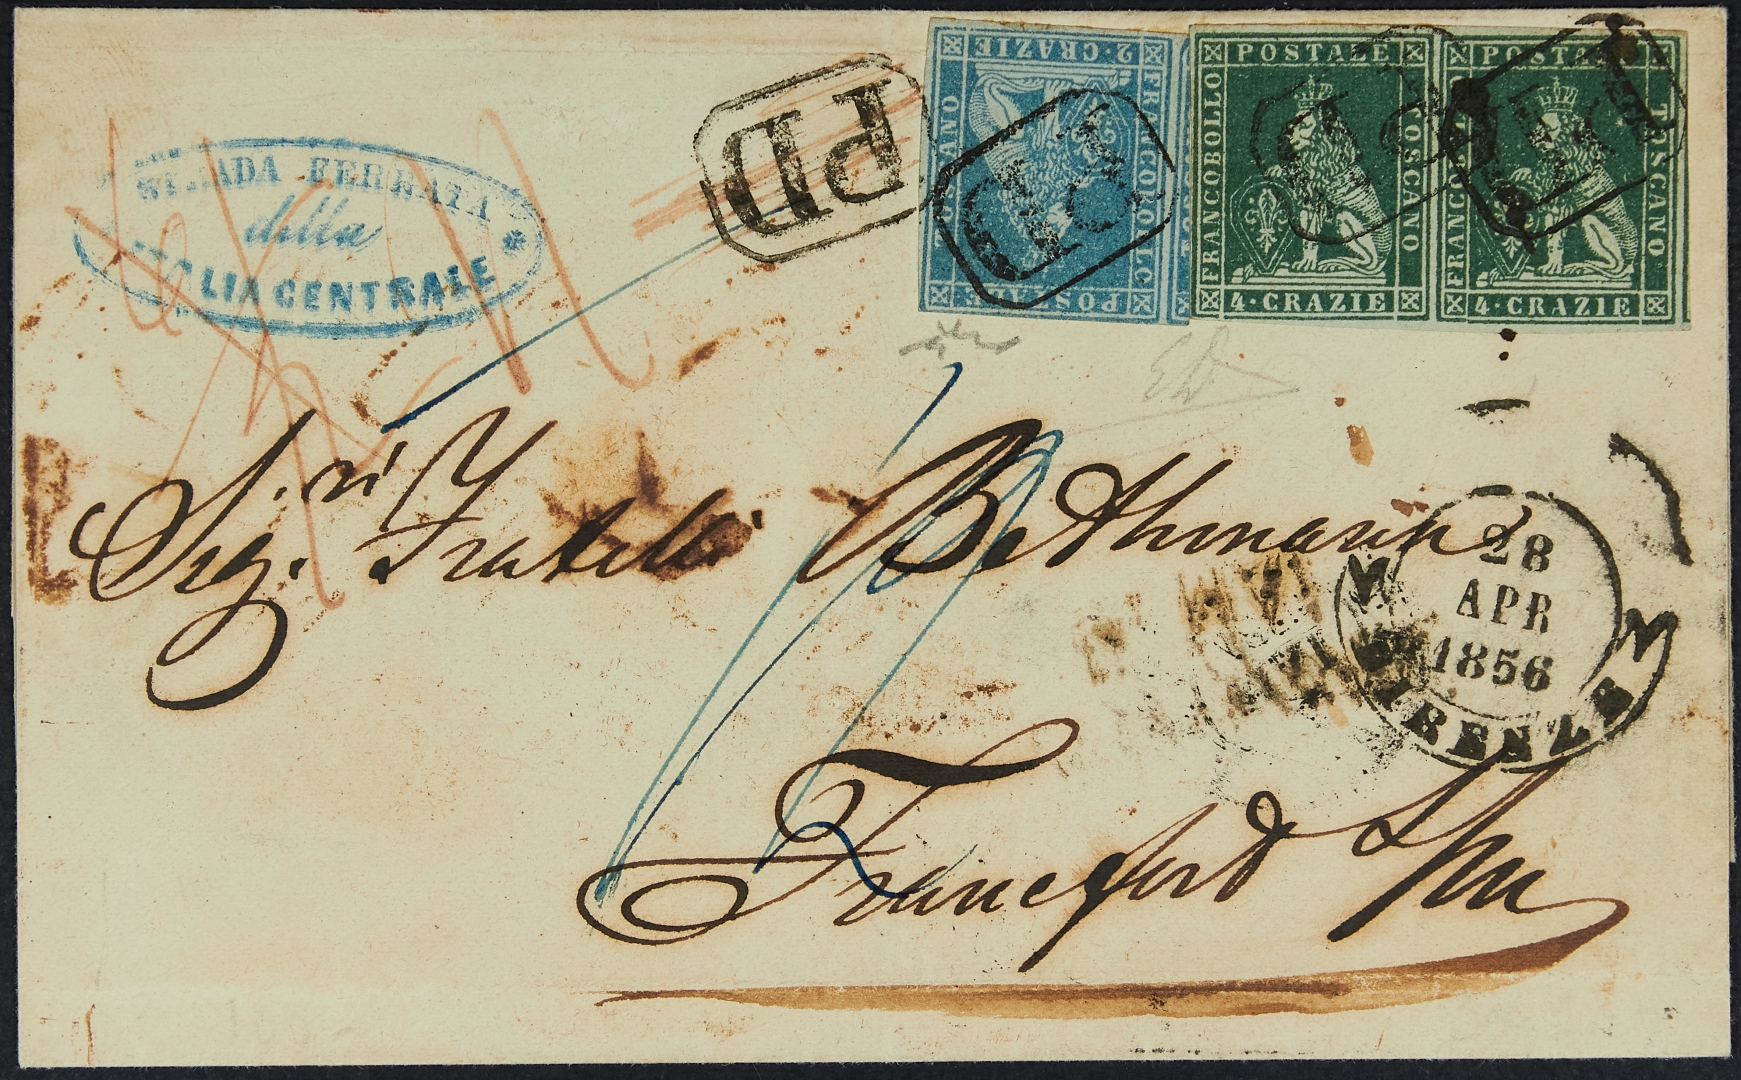 STRADA FERRATA
della
ITALIA CENTRALE
PD
2·CRAZIE
FRANCOBOLLO
POSTALE
TOSCANO
PD
POSTALE
FRANCOBOLLO
TOSCANO
4·CRAZIE
PD
POSTALE
TOSCANO
4·CRAZIE
PD
Sig.ri Fratelli Bethmann
28
APR
1856
FIRENZE
Francford s/m